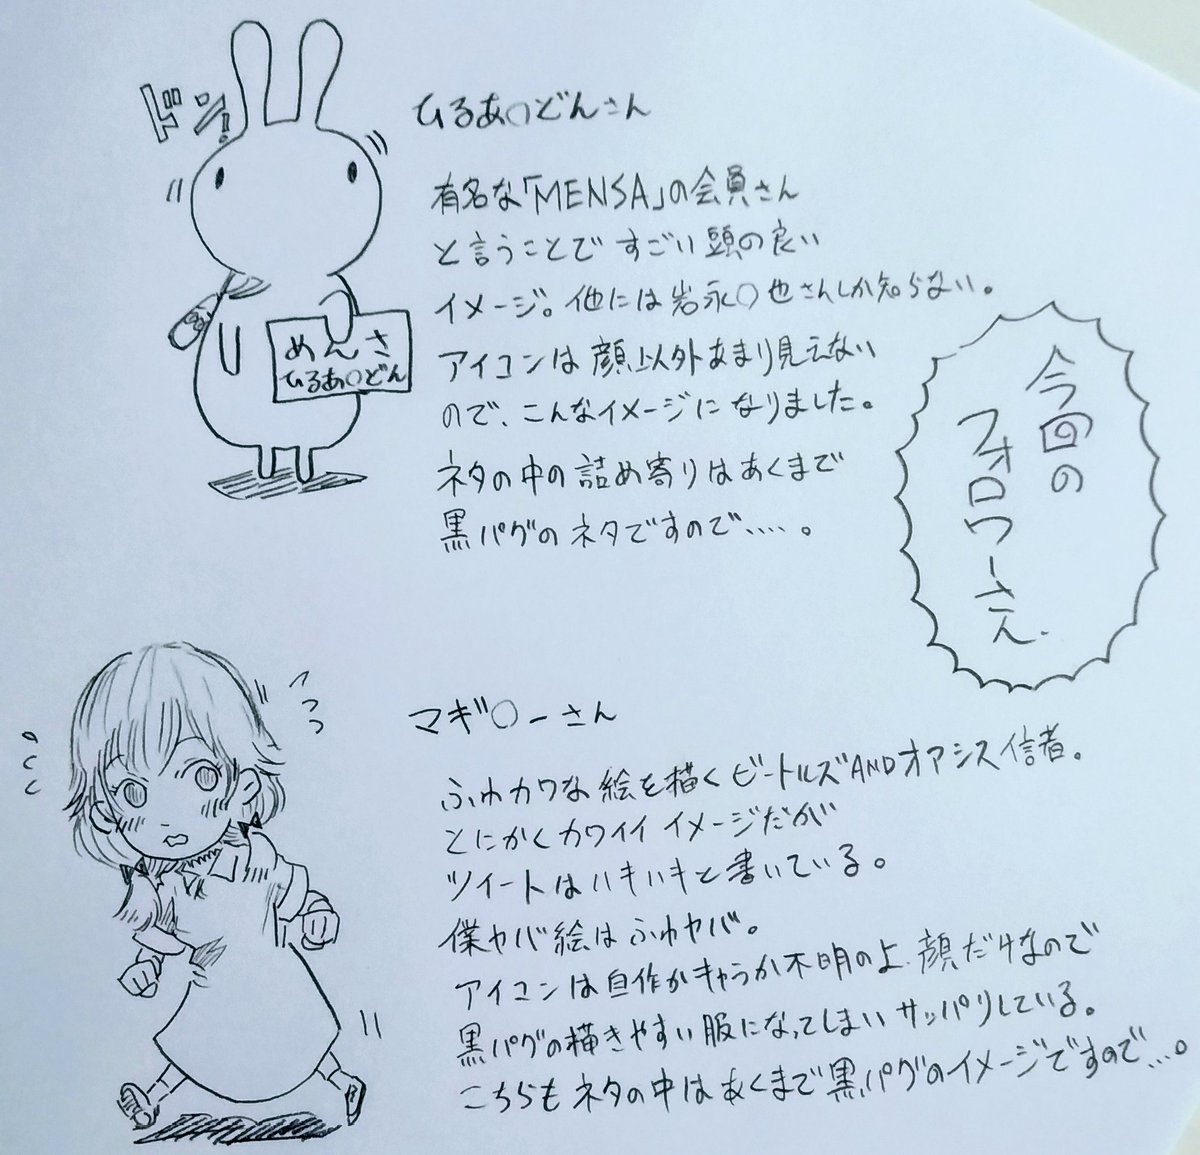 ドン!
ひるあ○どんさん
有名な「MENSA」の会員さん
と言うことですごい頭の良い
イメージ。他には岩永○也さんしか知らない。
アイコンは顔以外あまり見えない
ので、こんなイメージになりました。
ネタの中の詰め寄りはあくまで
黒パグのネタですので、、、、。
めんさ
ひるあ○どん
今回の
フォロワーさん
マギ○ーさん
ふわカワな絵を描くビートルズANDオアシス信者。
とにかくカワイイイメージだが
ツイートはハキハキと書いている。
僕ヤバ絵はふわヤバ。
アイコンは自作かキャラか不明の上、顔だけなので
黒パグの描きやすい服になってしまいサッパリしている。
こちらもネタの中はあくまで黒パグのイメージですので…。